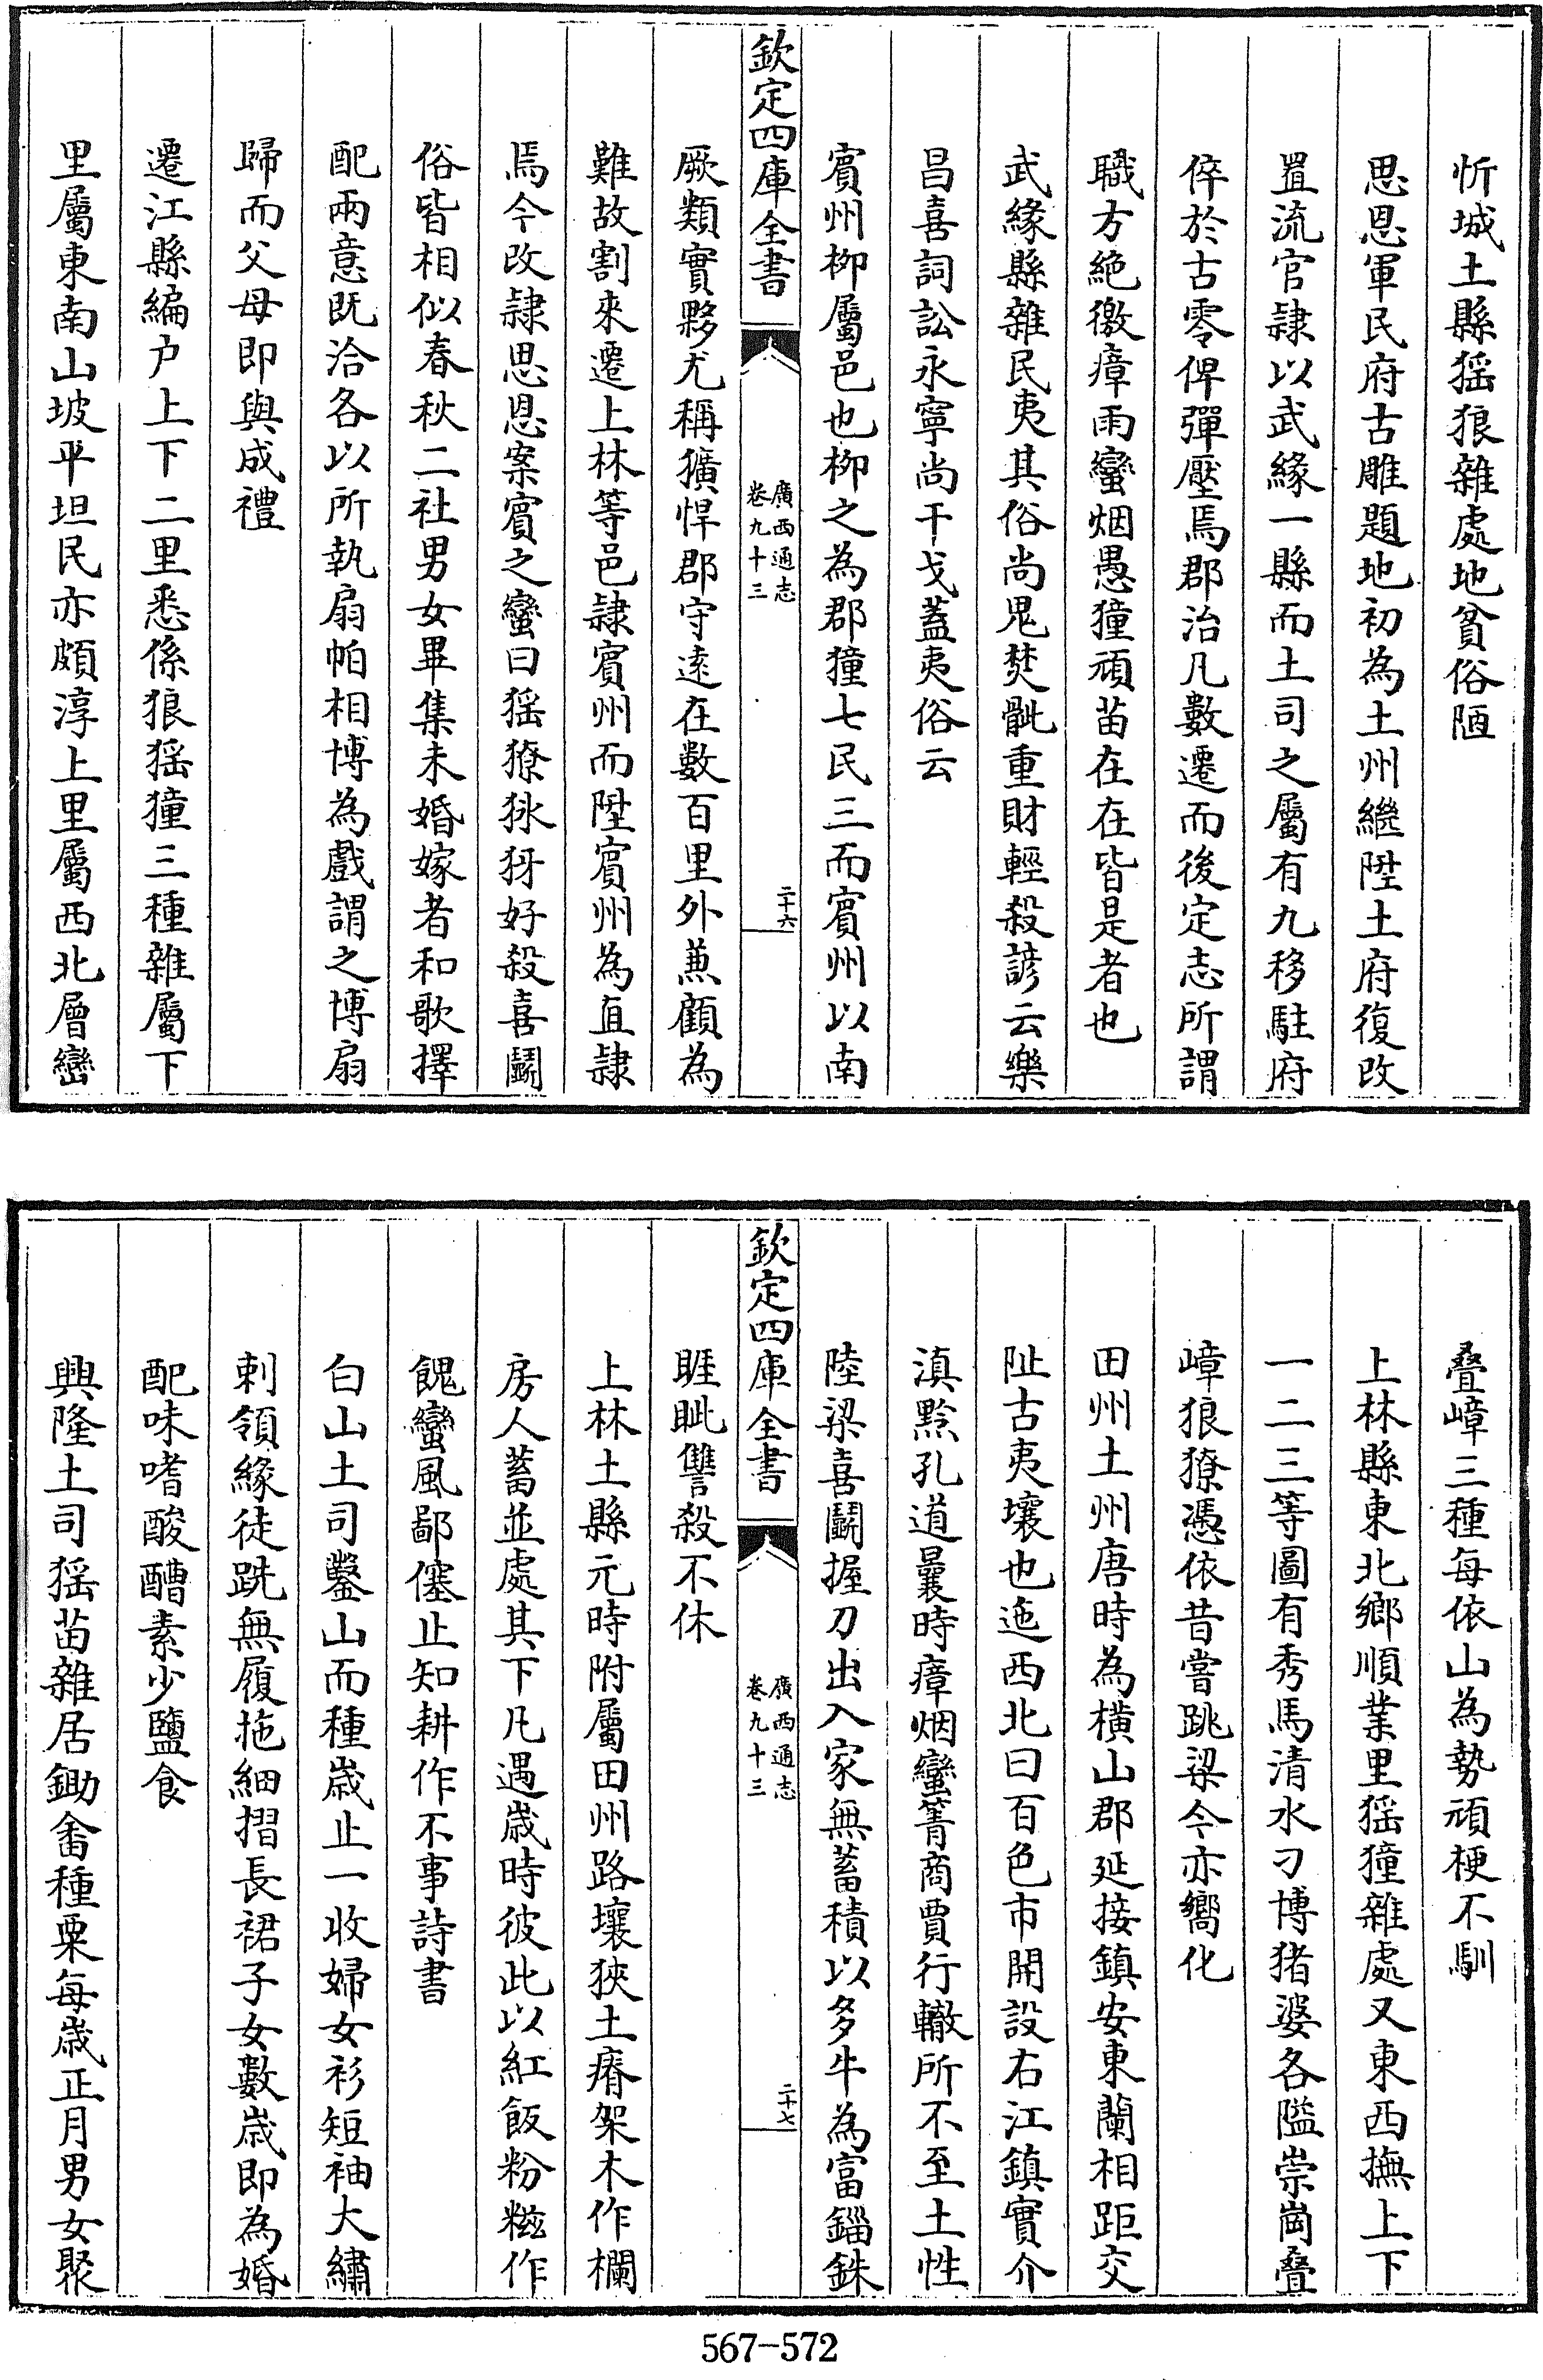 忻城土縣猺狼雜處地貧俗陋
思恩軍民府古雕題地初為土州繼陞土府復改
置流官隷以武緣一縣而土司之屬有九移駐府
倅於古零俾彈壓焉郡治凡數遷而後定志所謂
職方絶徼瘴雨蠻烟愚獞頑苗在在皆是者也
武緣縣雜民夷其俗尚鬼焚骴重財輕殺諺云樂
昌喜詞訟永寧尚干戈蓋夷俗云
賓州柳屬邑也柳之為郡獞七民三而賓州以南
欽定四庫全書
廣西通志
卷九十三
二十六
厥類實夥尤稱獷悍郡守逺在數百里外兼顧為
難故割來遷上林等邑隷賓州而陞賓州為直隷
焉今改隷思恩案賓之蠻曰猺獠狑犽好殺喜鬭
俗皆相似春秋二社男女畢集未婚嫁者和歌擇
配兩意既洽各以所執扇帕相博為戲謂之博扇
歸而父母即與成禮
遷江縣編户上下二里悉係狼猺獞三種雜屬下
里屬東南山坡平坦民亦頗淳上里屬西北層巒
叠嶂三種每依山為勢頑梗不馴
上林縣東北鄉順業里猺獞雜處又東西撫上下
一二三等圖有秀馬清水刁博猪婆各隘崇崗叠
嶂狼獠憑依昔嘗跳梁今亦嚮化
田州土州唐時為横山郡延接鎮安東蘭相距交
阯古夷壤也迤西北曰百色市開設右江鎮實介
滇黔孔道曩時瘴烟蠻箐商賈行轍所不至土性
陸梁喜鬭握刀出入家無蓄積以多牛為富錙銖
欽定四庫全書
廣西通志
卷九十三
二十七
睚眦讐殺不休
上林土縣元時附屬田州路壤狹土瘠架木作欄
房人蓄並處其下凡遇歲時彼此以紅飯粉糍作
餽蠻風鄙僿止知耕作不事詩書
白山土司鑿山而種歲止一收婦女衫短袖大繡
刺領緣徒跣無履拖細摺長裙子女數歲即為婚
配味嗜酸醩素少鹽食
興隆土司猺苗雜居鋤畬種粟每歲正月男女聚
567-572